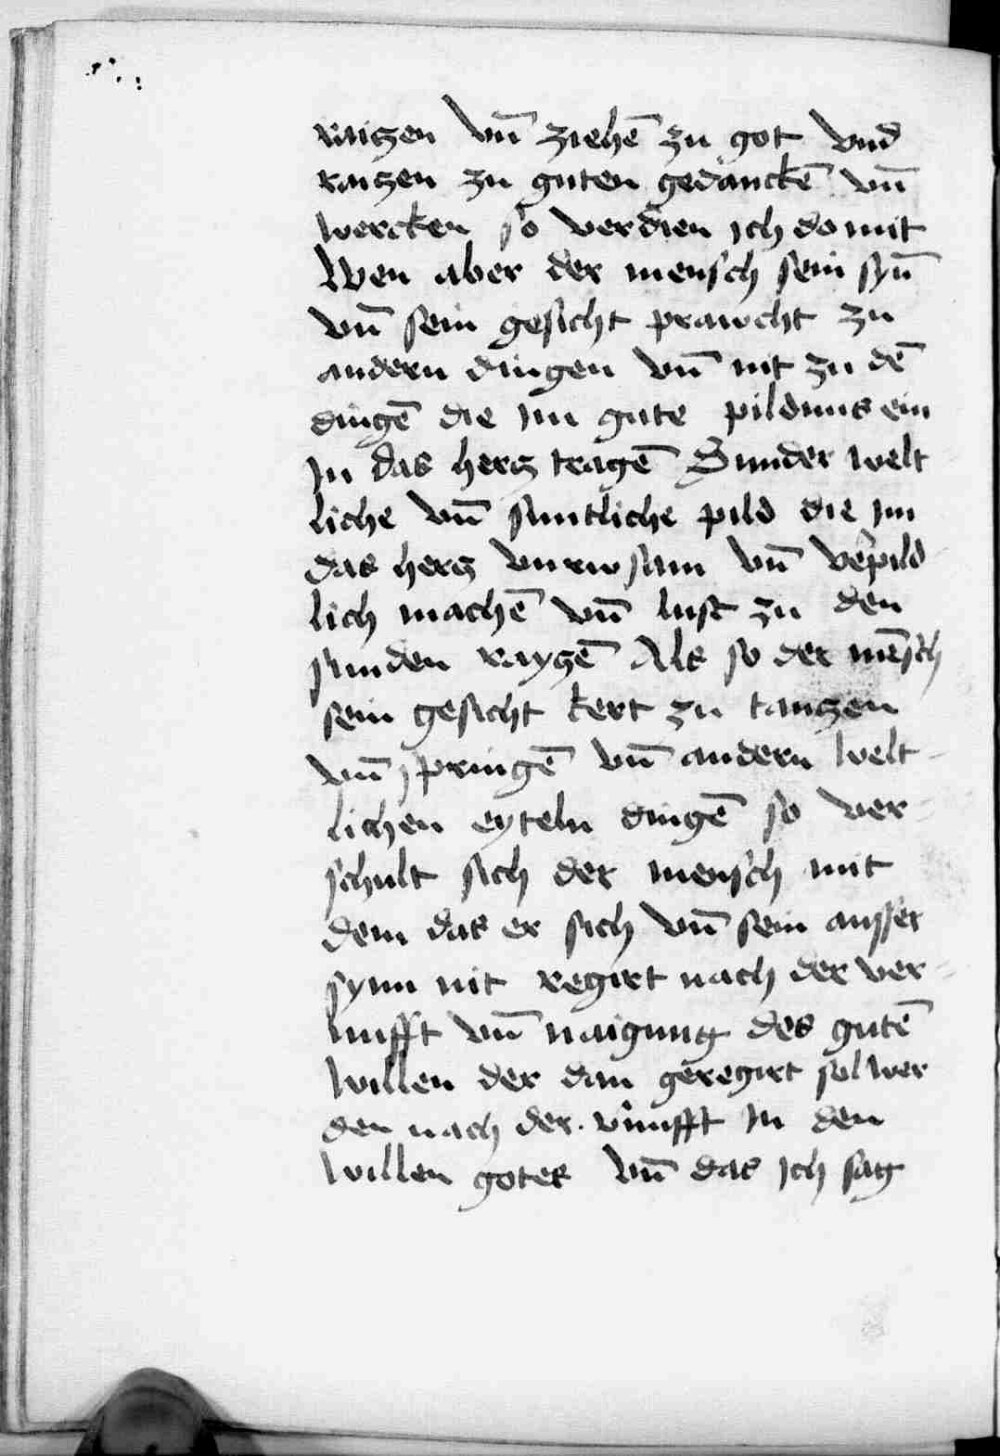 raitzen vn̄ ziehē zu got vnd
raitzen zu guten gedanckē vn̄
wercken so verdien ich do mit
Wen aber der mensch sein syn̄
vn̄ sein gesicht prawcht zu
andern dingen vn̄ nit zu dē
dingē die im gute pildnus ein
In das hertz tragē Sunder welt
liche vn̄ suntliche pild die im
das hertz vnrwsam vn̄ v̄pild
lich machē vn̄ lust zu den
sunden raytzē Als so der mēsch
sein gesicht kert zu tantzen
vn̄ springē vn̄ andern welt-
lichen eyteln dingē so ver-
schult sich der mensch mit
dem das er sich vn̄ sein ausser
synn nit regirt nach der ver-
nufft vn̄ naigung des gutē
willen der dan geregirt sol wer
den nach der v̄nufft in den
willen gotes vn̄ das ich sag